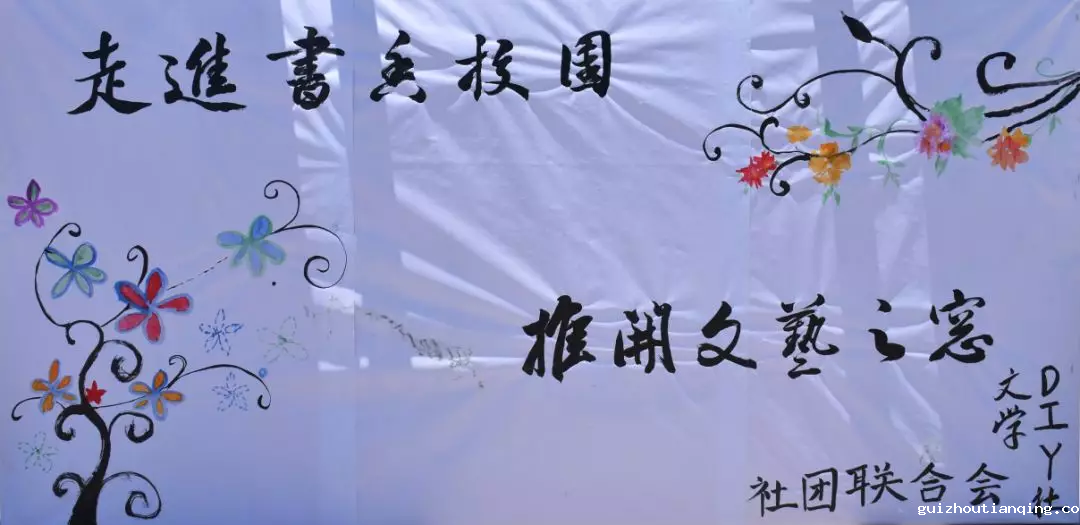 走進書香校園
推開文藝之窓
文学
DIY社
社团联合会
guizhoutianqing.co